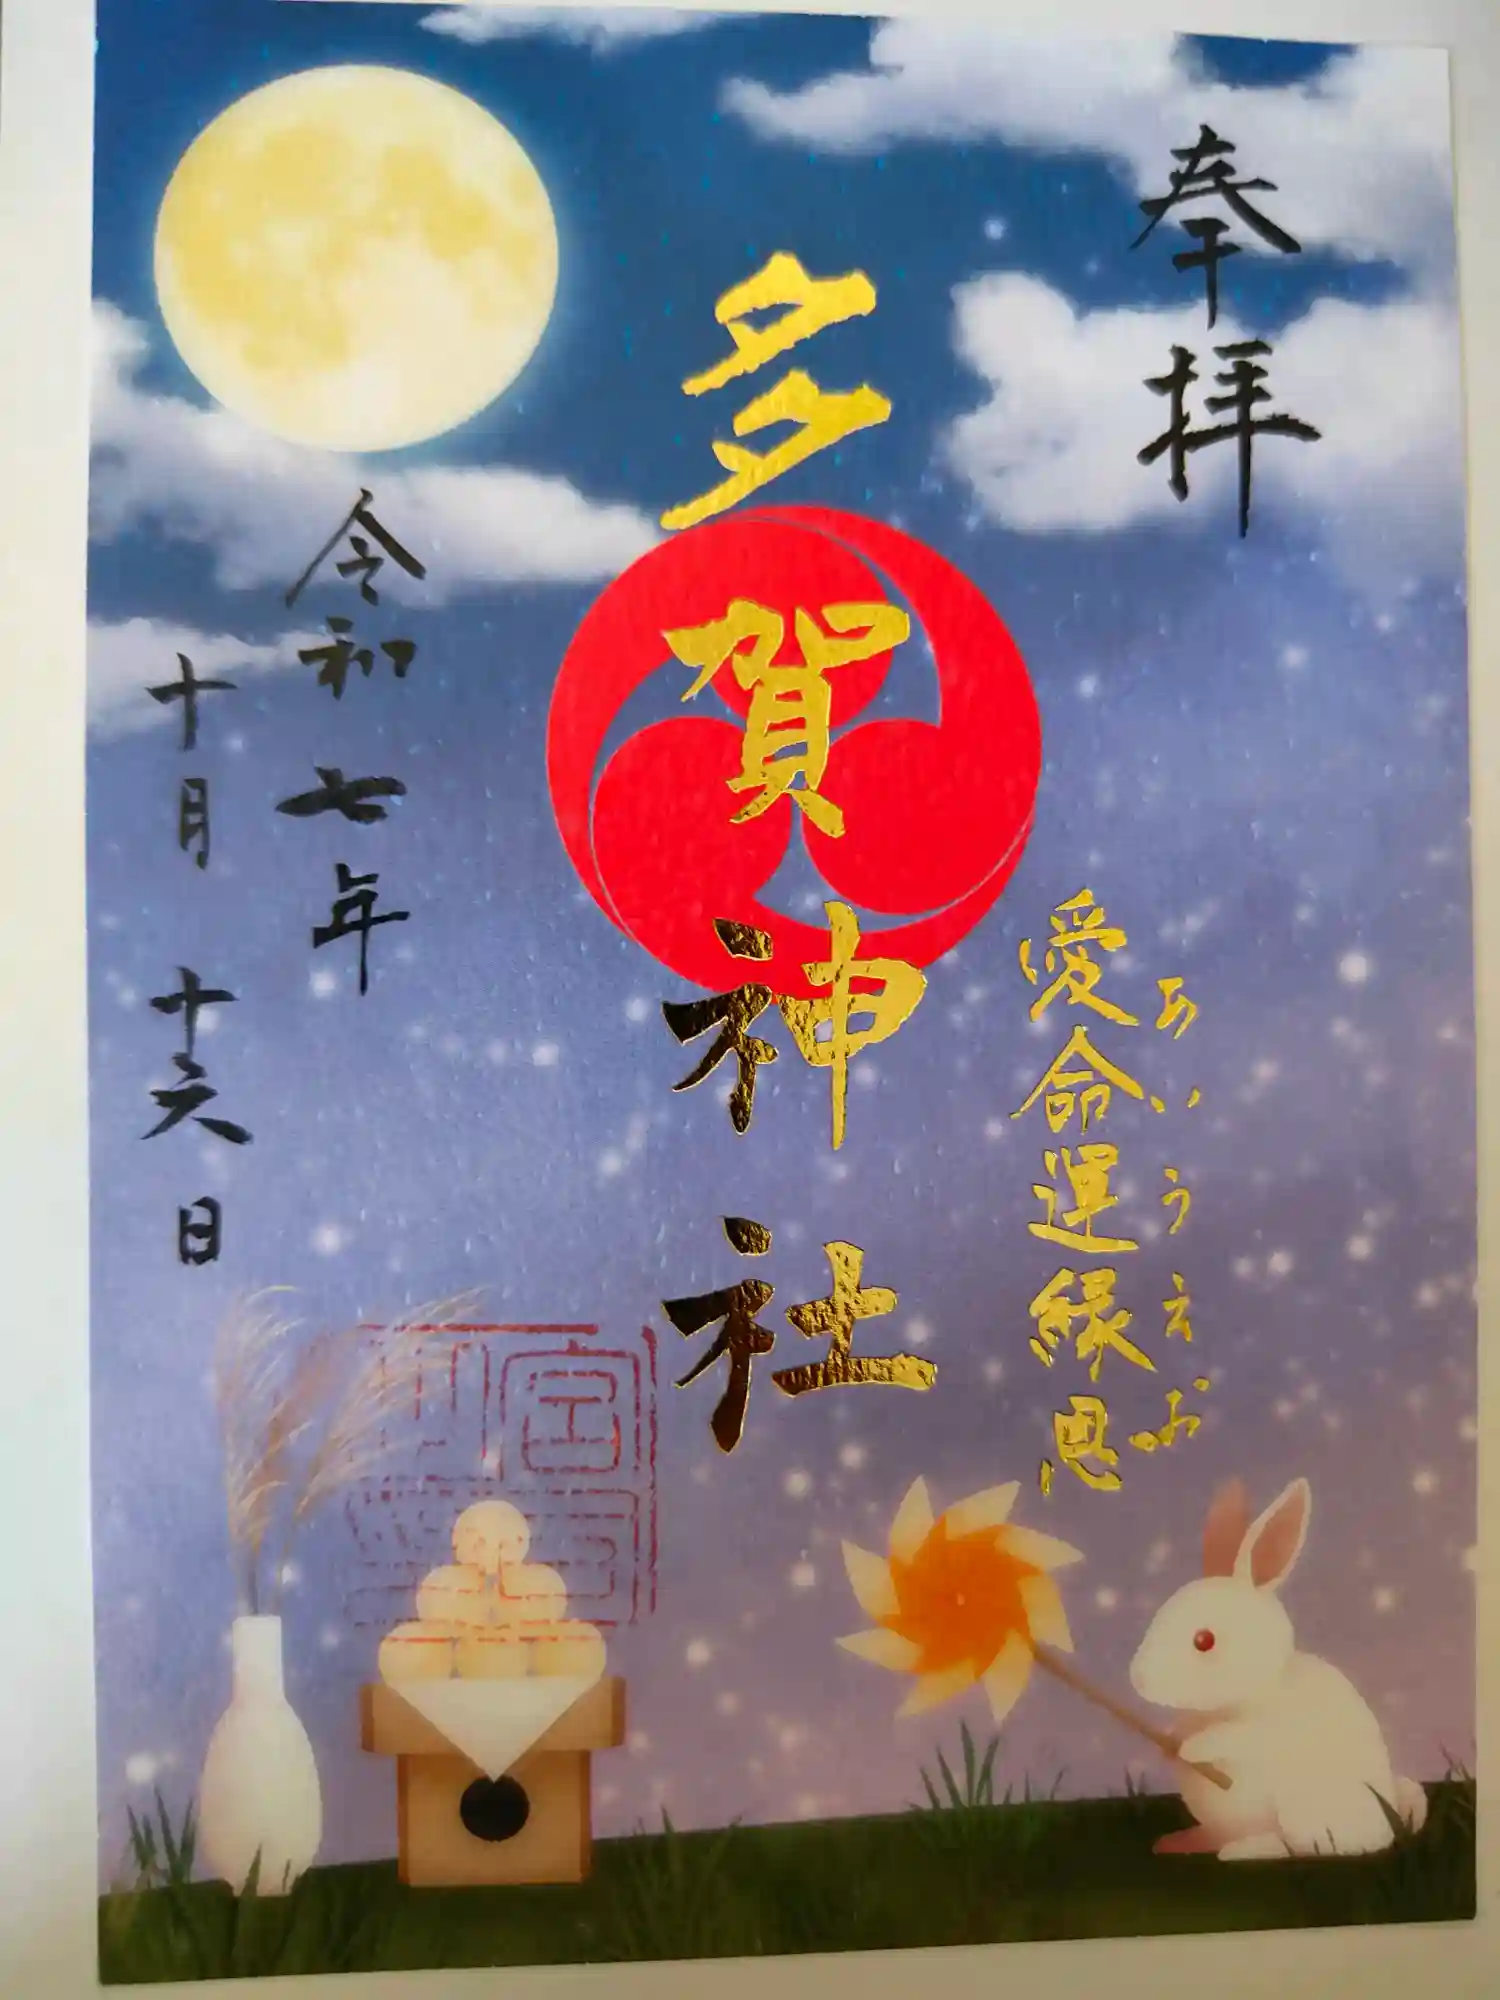 奉拝
愛命運縁恩
あいうえお
多賀神社
令和七年
十月十六日